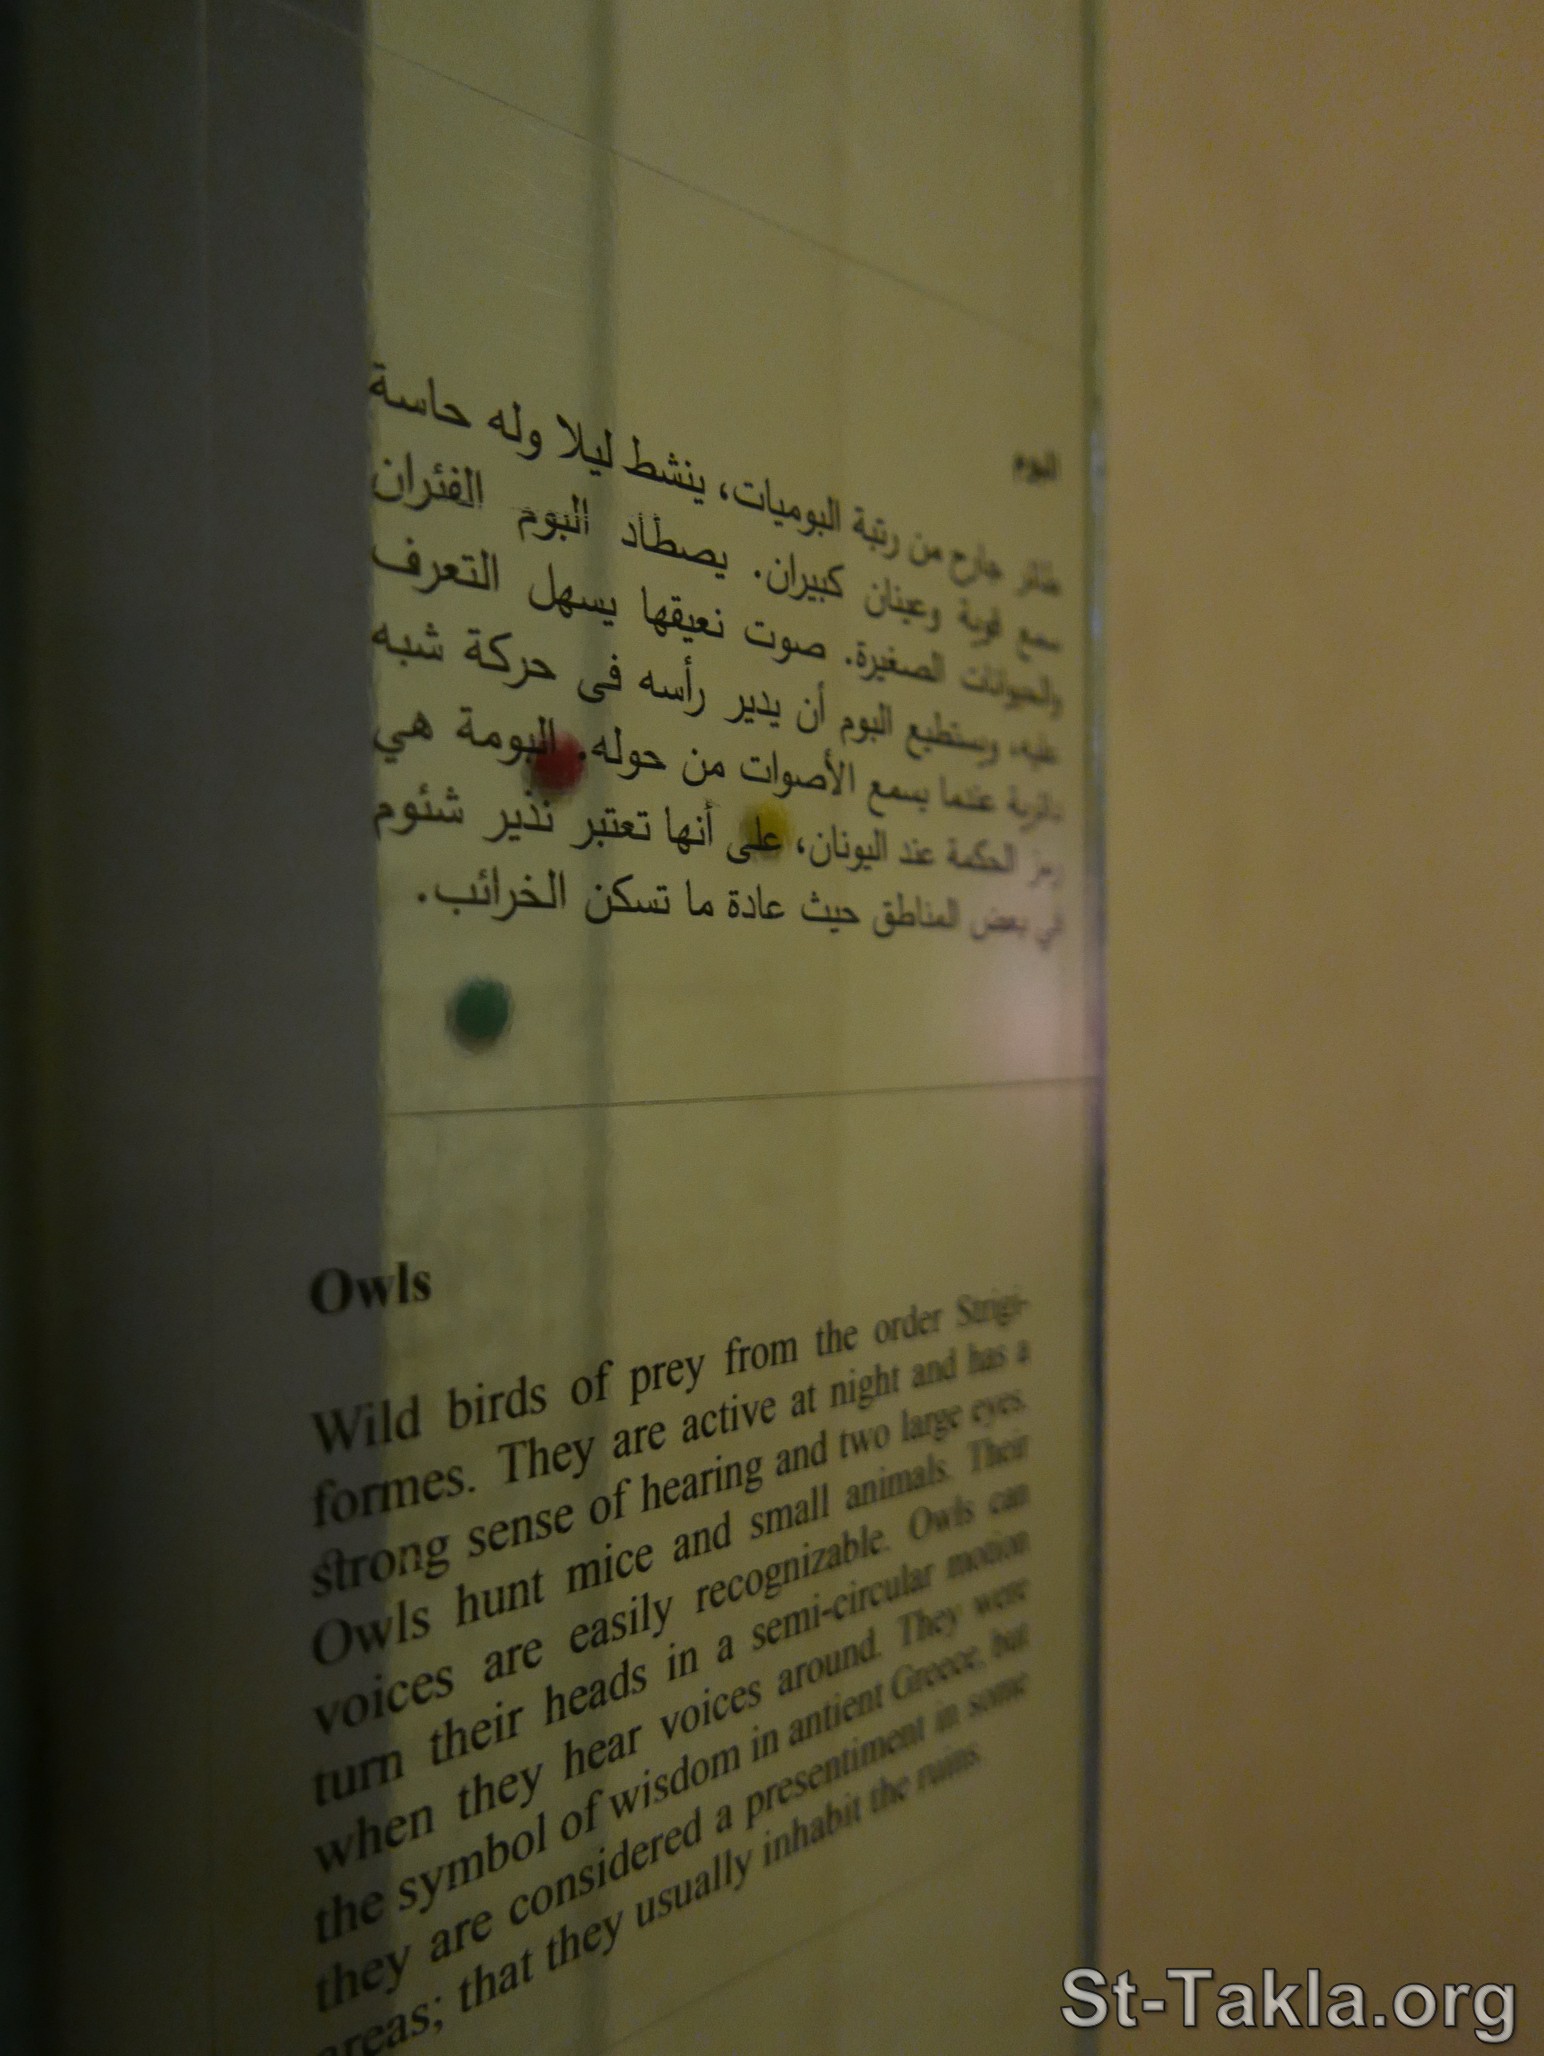 البوم
طائر جارح من رتبة البوميات، ينشط ليلا وله حاسة
سمع قوية وعينان كبيران. يصطاد البوم الفئران
والحيوانات الصغيرة. صوت نعيقها يسهل التعرف
عليه، ويستطيع البوم أن يدير رأسه فى حركة شبه
دائرية عندما يسمع الأصوات من حوله. البومة هي
رمز الحكمة عند اليونان، على أنها تعتبر نذير شئوم
في بعض المناطق حيث عادة ما تسكن الخرائب.
Owls
Wild birds of prey from the order Strigi-
formes. They are active at night and has a
strong sense of hearing and two large eyes.
Owls hunt mice and small animals. Their
voices are easily recognizable. Owls can
turn their heads in a semi-circular motion
when they hear voices around. They were
the symbol of wisdom in antient Greece, but
they are considered a presentiment in some
areas; that they usually inhabit the ruins.
St-Takla.org